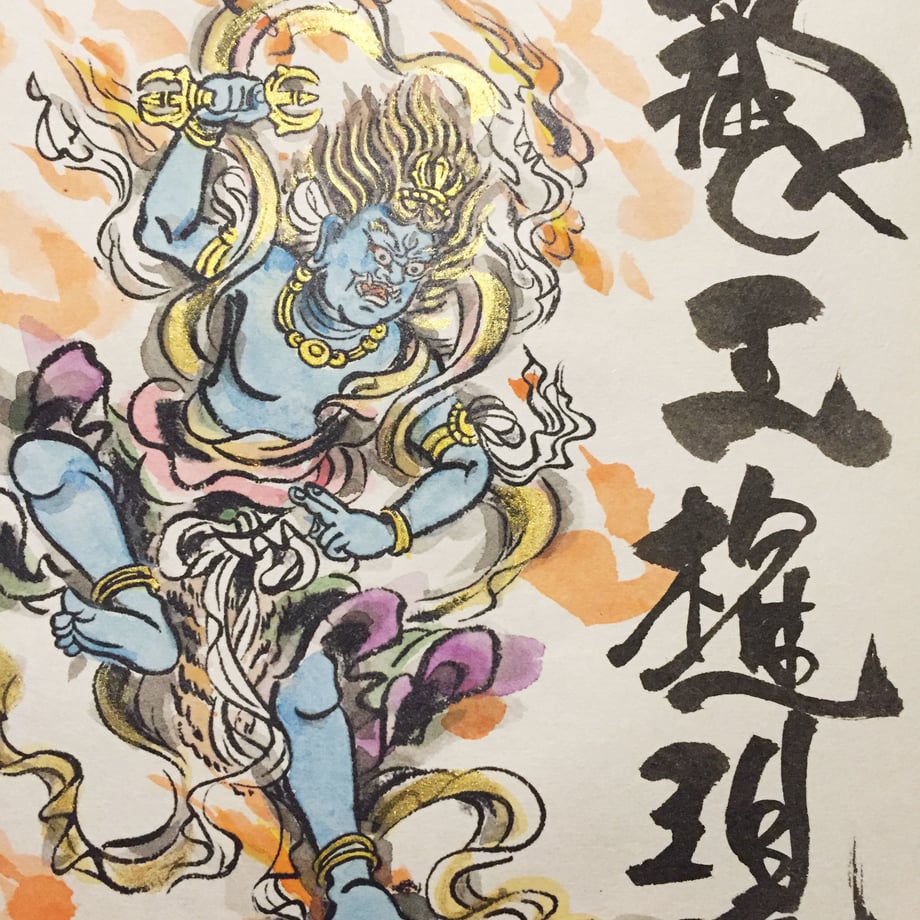 蔵王権現